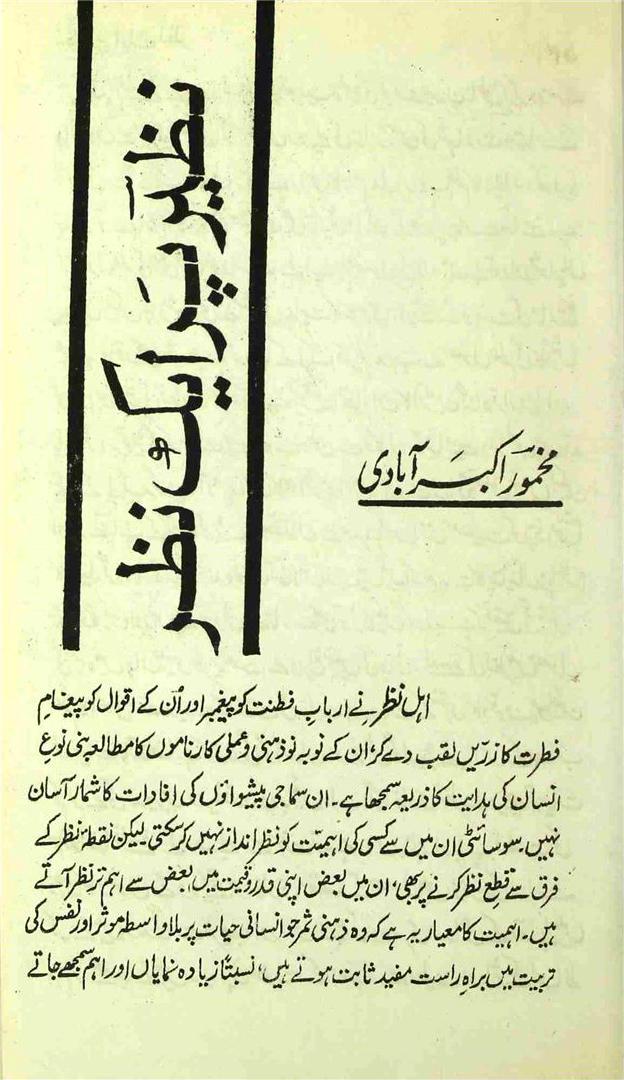 نظیر پر ایک نظر
مخمور اکبر آبادی
اہل نظر نے اربابِ فطنت کو پیغمبر اور اُن کے اقوال کو پیغامِ
فطرت کا زرّیں لقب دے کر، ان کے نو بہ نو ذہنی و عملی کارناموں کا مطالعہ بنی نوعِ
انسان کی ہدایت کا ذریعہ سمجھا ہے۔ ان سماجی پیشواؤں کی افادات کا شمار آسان
نہیں۔ سوسائٹی ان میں سے کسی کی اہمیّت کو نظر انداز نہیں کر سکتی۔ لیکن نقطۂ نظر کے
فرق سے قطع نظر کرنے پر بھی، ان میں بعض اپنی قدر و قیمت میں، بعض سے اہم تر نظر آتے
ہیں۔ اہمیت کا معیار یہ ہے کہ وہ ذہنی ثمر جو انسانی حیات پر بلا واسطہ موثر اور نفس کی
تربیت میں براہِ راست مفید ثابت ہوتے ہیں، نسبتاً زیادہ نمایاں اور اہم سمجھے جاتے